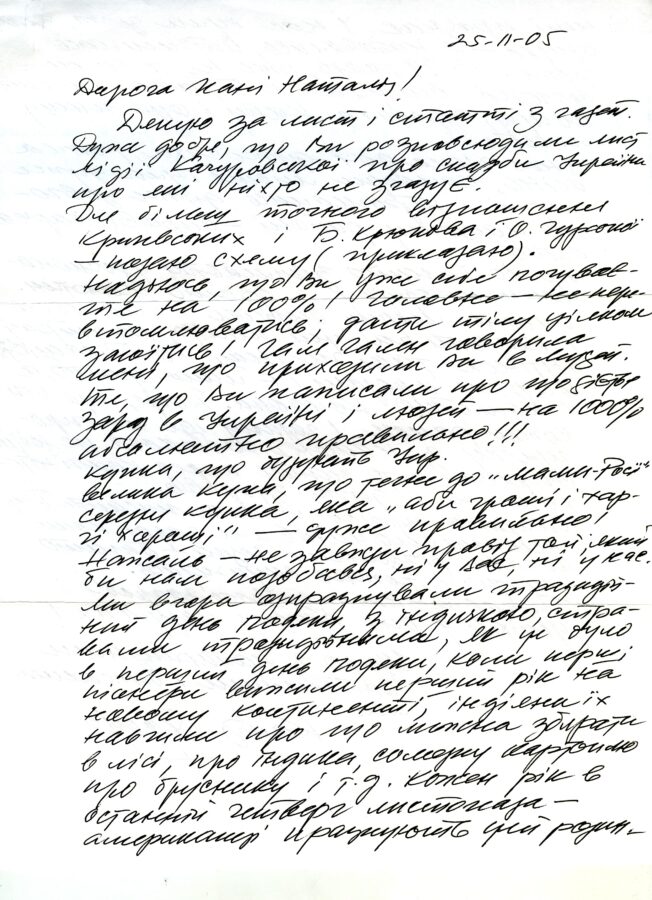 25-11-05
Дорога пані Наталю!
Дякую за лист і статті з газет.
Дуже добре, що Ви розповсюдили лист
Лідії Качуровської про скарби України
про які ніхто не згадує.
Для більш точного визначення
Кричевських і Б. Крюкова і О.
— подаю схему (прикладаю).
Надіюсь, що Ви уже себе почуває-
те на 100%! Головне — не пере-
втомлюватись; дати тілу цілком
загоїтись! Галя говорила
мені, що приходили Ви в музей.
Те, що Ви написали про що діється
зараз в Україні і людей — на 1000%
абсолютно правильно!!!
купка, що будують Укр.
велика купа, що тягне до „мами-Росії"
середня купка, яка „аби гроші і хар-
чі хароші" — дуже правильно!
Нажаль — не завжди правиє той, який
би нам подобався, ні у Вас, ні у нас.
Ми вчора відпразнували традицій-
ний день подяки, з індичкою, стра-
вами традиційними, як це було
в перший день подяки, коли перші
піонери вижили перший рік на
новому континенті, індіяни їх
навчили про що можна збирати
в лісі, про індика, солодку картоплю
про бруснику і т.д. Кожен рік в
останній четверг листопада —
американці празнують цей родин-